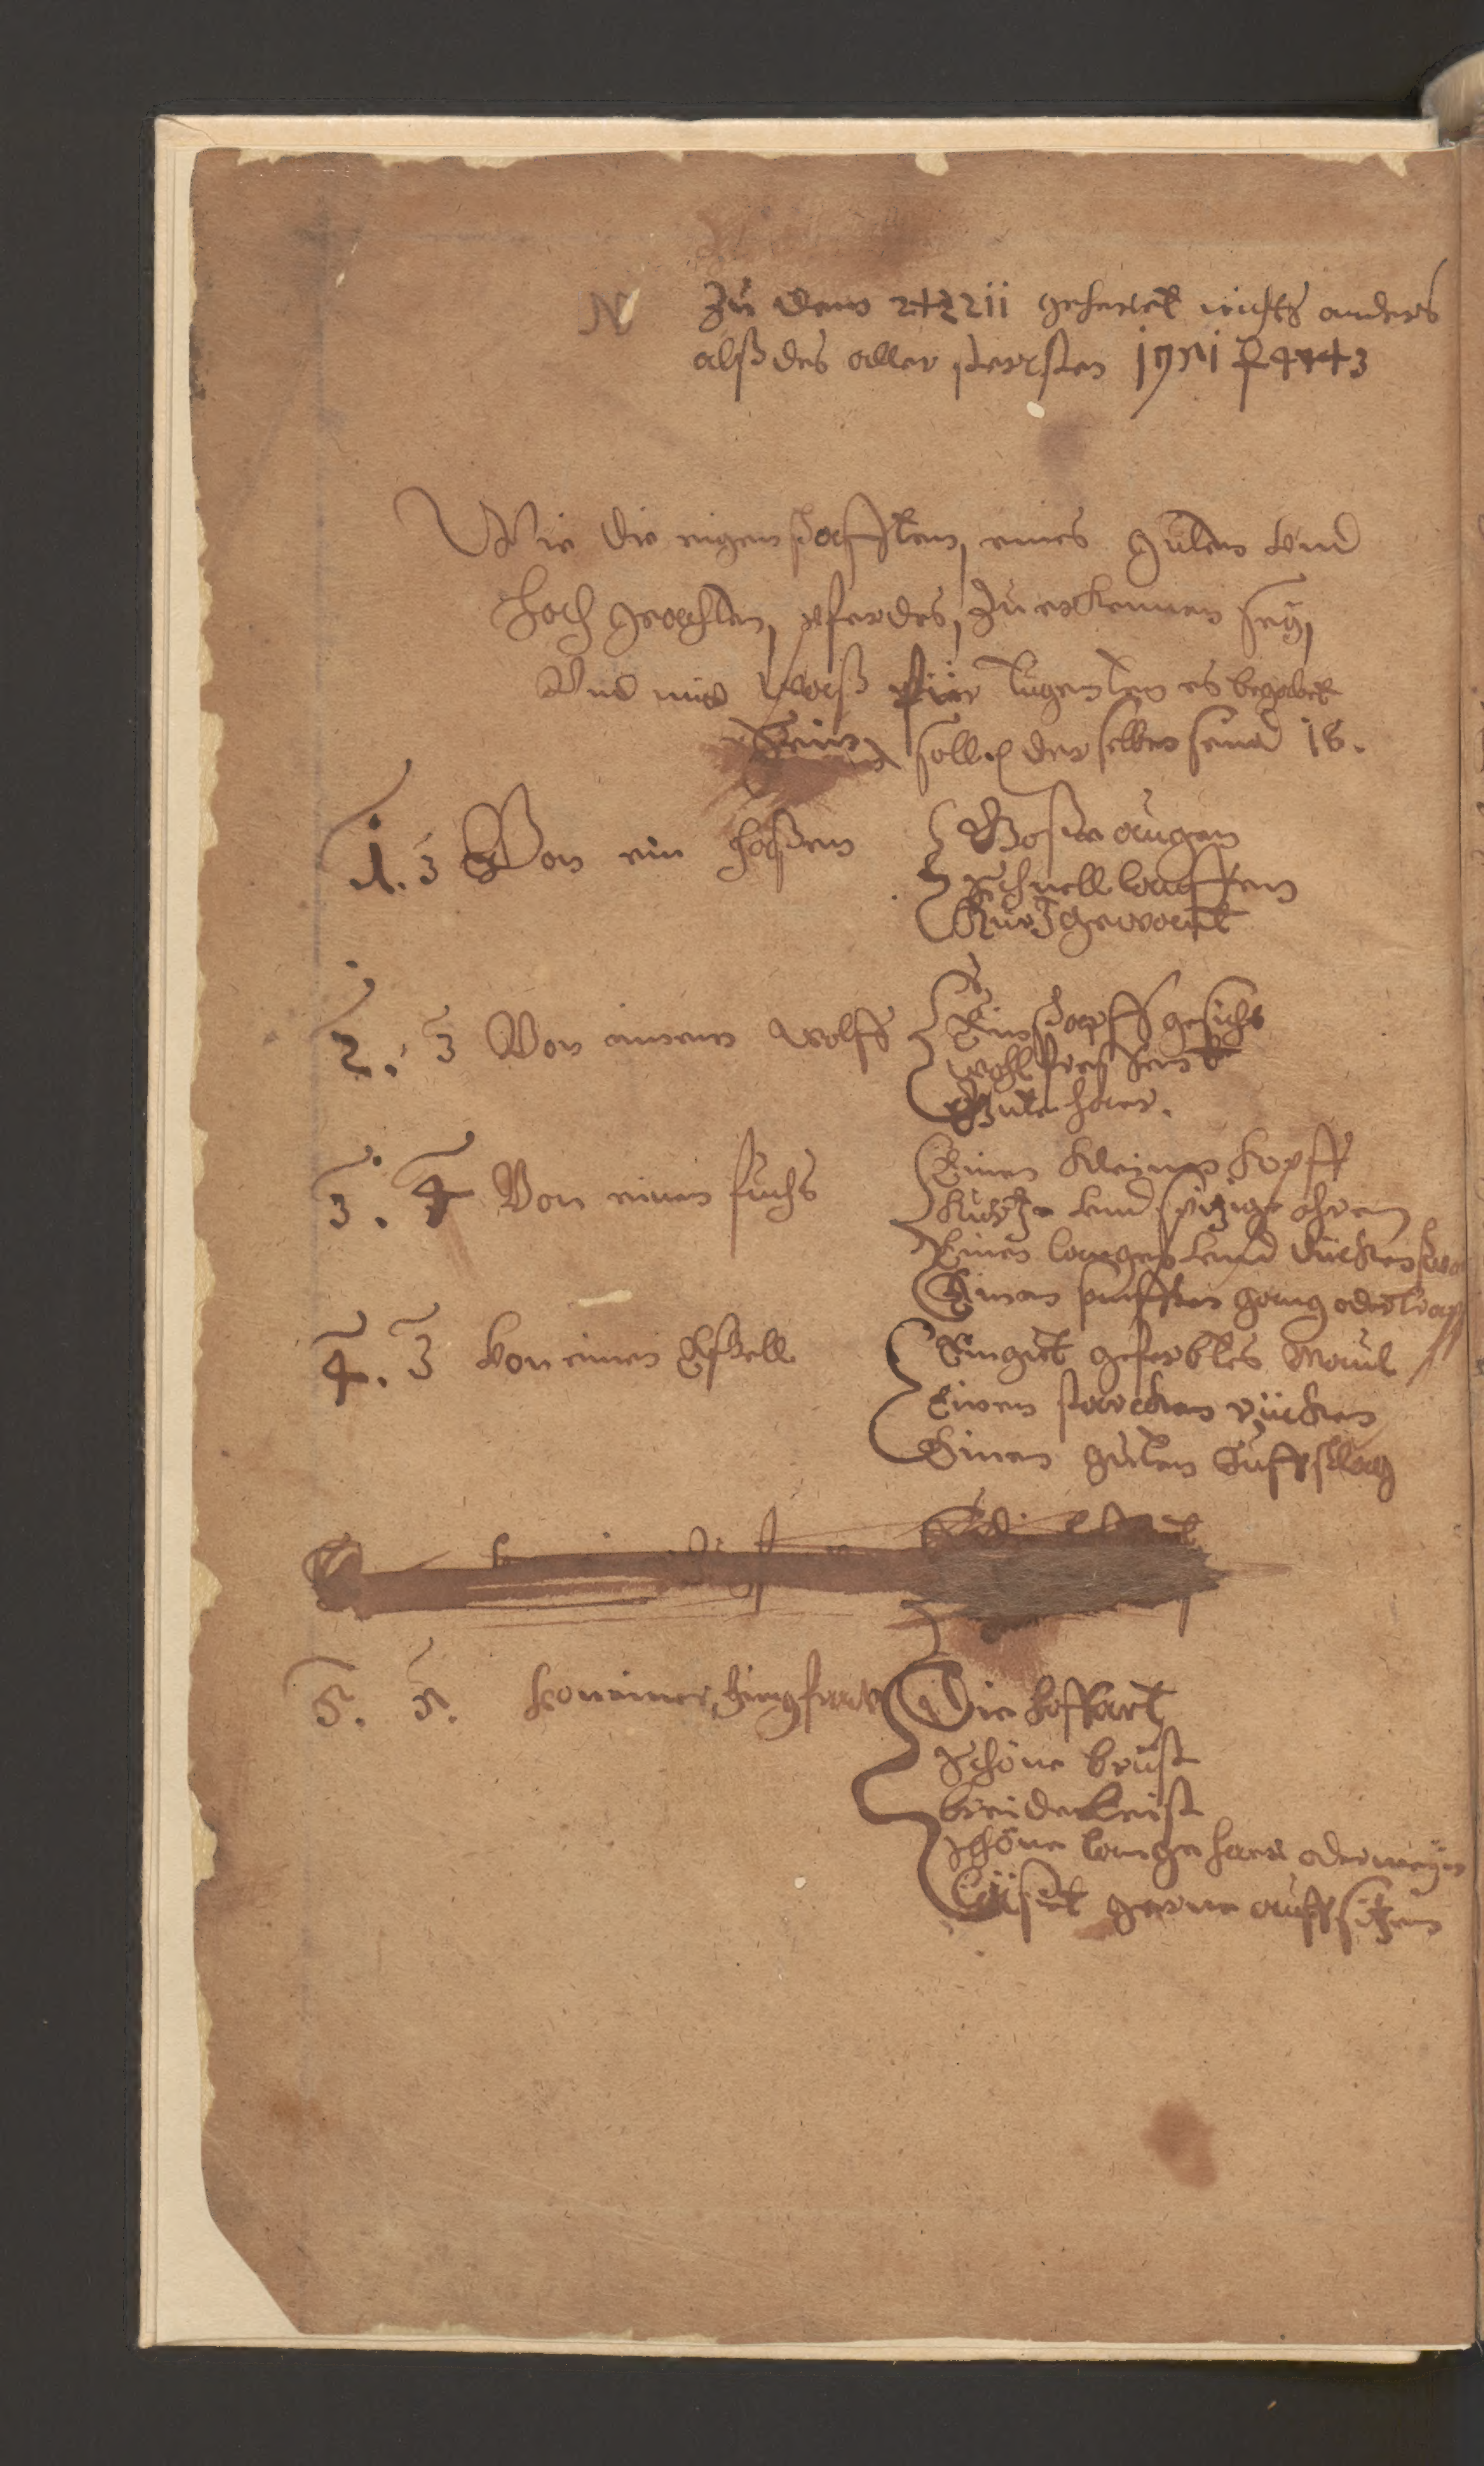 N Zu dem 2+22ii gehöret nichts anders
alß des aller sterksten
Wie die eigenschafften, eines guten vnd
hoch geachten, pferdes, zu erkennen seÿ,
Vnd mit waß für tugenten es begabet
sein soll, derselben seind 18.
1. 3 Von ein haßen { Große augen
Schnell lauffen
Kurtz gewant
2. 3 Von einem wolff { Ein scharpff gesicht
wohl fressent
Gute haar.
3. 4 Von einem fuchs { Einen kleinen kopff
kurtze vnd spitzige ohren
Einen langen vnd dicken
Einen sanfften gang oder trap
4. 3 von einem Essell { Ein gut geferbtes Maul
Einen starcken rücken
Einen guten huffschlag
5. 5. von einer Jungfraw { Die hoffart
Schöne brust
breide
Schöne lange haar oder meÿn
Läset gerne auffsitzen